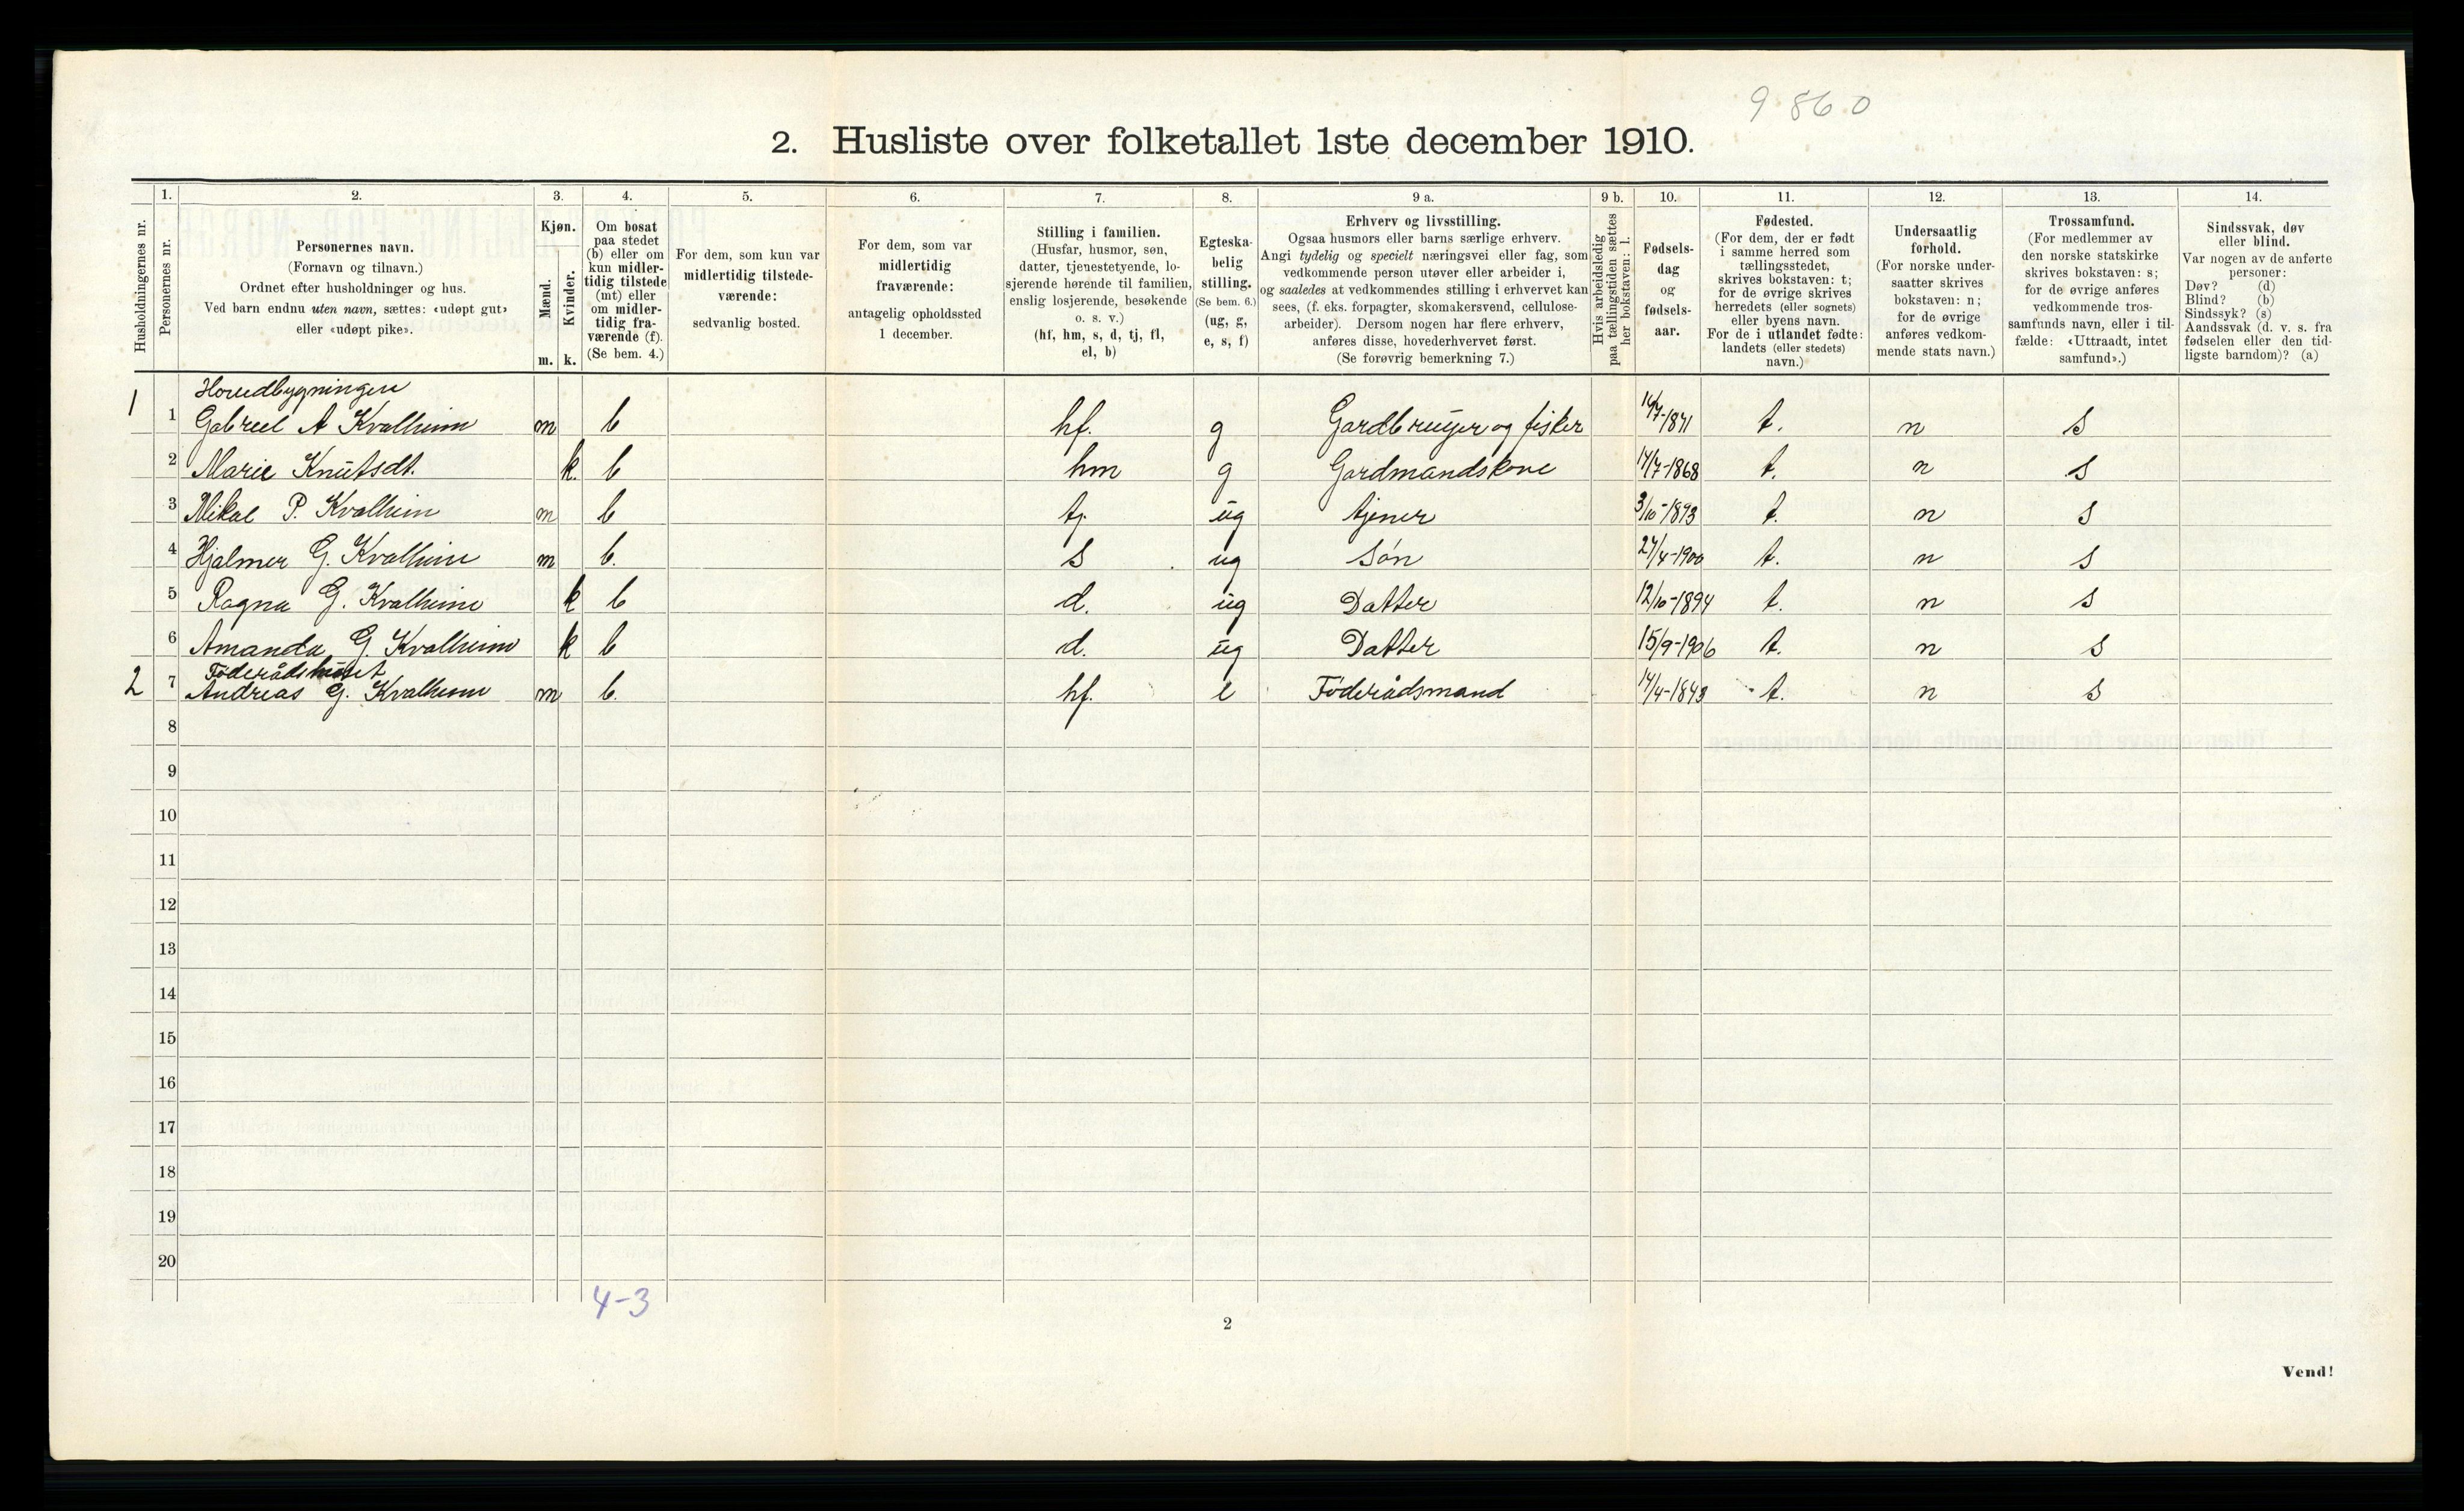 9 86 0
2. Husliste over folketallet 1ste december 1910.
Husholdningernes nr.
1.
Personernes nr.
2.
Personernes navn.
(Fornavn og tilnavn.)
Ordnet efter husholdninger og hus.
Ved barn endnu uten navn, sættes: «udøpt gut»
eller «udøpt pike».
3.
Kjøn.
Mænd.
Kvinder.
m. k.
4.
Om bosat
paa stedet
(b) eller om
kun midler-
tidig tilstede
(mt) eller
om midler-
tidig fra-
værende (f).
(Se bem. 4.)
5.
For dem, som kun var
midlertidig tilstede-
værende:
sedvanlig bosted.
6.
For dem, som var
midlertidig
fraværende:
antagelig opholdssted
1 december.
7.
Stilling i familien.
(Husfar, husmor, søn,
datter, tjenestetyende, lo-
sjerende hørende til familien,
enslig losjerende, besøkende
o. s. v.)
(hf, hm, s, d, tj, fl,
el, b)
8.
Egteska-
belig
stilling.
(Se bem. 6.)
(ug, g,
e, s, f)
9 a.
Erhverv og livsstilling.
Ogsaa husmors eller barns særlige erhverv.
Angi tydelig og specielt næringsvei eller fag, som
vedkommende person utøver eller arbeider i,
og saaledes at vedkommendes stilling i erhvervet kan
sees, (f. eks. forpagter, skomakersvend, cellulose-
arbeider). Dersom nogen har flere erhverv,
anføres disse, hovederhvervet først.
(Se forøvrig bemerkning 7.)
9 b.
Hvis arbeidsledig
paa tællingstiden sættes
her bokstaven: l.
10.
Fødsels-
dag
og
fødsels-
aar.
11.
Fødested.
(For dem, der er født
i samme herred som
tællingsstedet,
skrives bokstaven: t;
for de øvrige skrives
herredets (eller sognets)
eller byens navn.
For de i utlandet fødte:
landets (eller stedets)
navn.)
12.
Undersaatlig
forhold.
(For norske under-
saatter skrives
bokstaven: n;
for de øvrige
anføres vedkom-
mende stats navn.)
13.
Trossamfund.
(For medlemmer av
den norske statskirke
skrives bokstaven: s;
for de øvrige anføres
vedkommende tros-
samfunds navn, eller i til-
fælde: «Uttraadt, intet
samfund».)
14.
Sindssvak, døv
eller blind.
Var nogen av de anførte
personer:
Døv? (d)
Blind? (b)
Sindssyk? (s)
Aandssvak (d. v. s. fra
fødselen eller den tid-
ligste barndom)? (a)
Hovedbygningen
1 1 Gabriel A Kvalheim m b hf. g Gardbruger og fisker 14/7-1871 t. n s
2 Marie Knutsdt. k. b hm g Gardmandskone 14/7-1868 t. n s
3 Mikal P. Kvalheim m b tj. ug tjener 3/10-1893 t. n s
4 Hjalmer G. Kvalheim m b. s ug søn 27/4-1900 t. n s
5 Ragna G. Kvalheim k b d. ug Datter 12/10-1894 t. n s
6 Amanda G. Kvalheim k b d. ug Datter 15/9-1906 t. n s
Föderådshuset
2 7 Andreas G. Kvalheim m b. hf. e Föderådsmand 14/4-1843 t. n s
8
9
10
11
12
13
14
15
16
17
18
19
20
4-3
2
Vend!